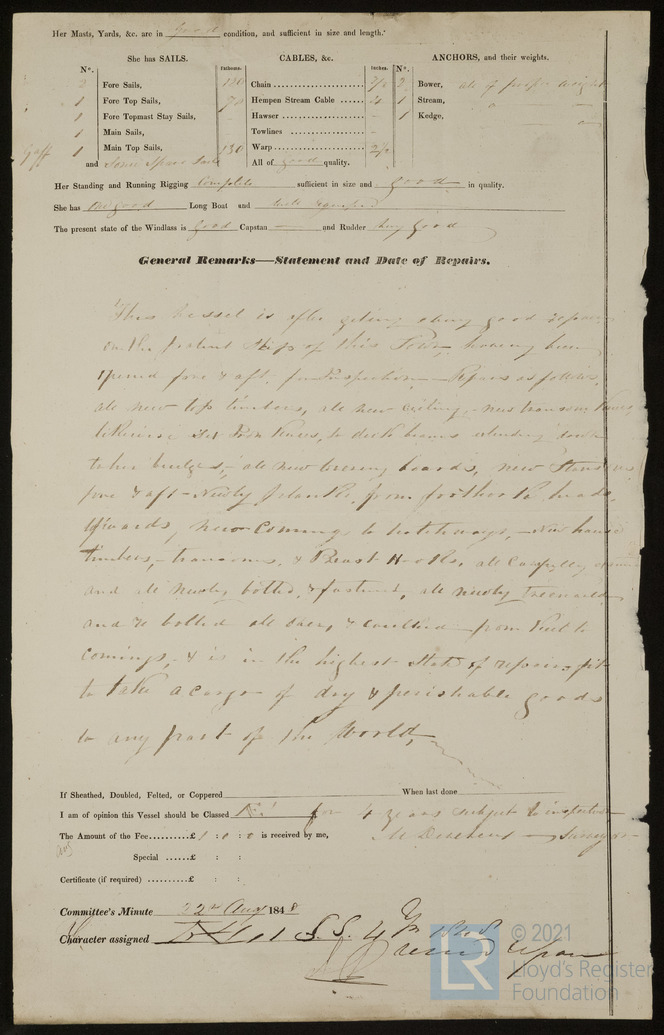 Her Masts, Yards, &c. are in good condition, and sufficient in size and length.
She has SAILS. CABLES, &c. ANCHORS, and their weights.
N°. Fathoms. Inches. N°.
2 Fore Sails, 120 Chain 2 Bower, all of proper weight
1 Fore Top Sails, 70 Hempen Stream Cable 4 1 Stream,
1 Fore Topmast Stay Sails, Hawser - 1 Kedge,
1 Main Sails, Towlines -
Gaff 1 Main Top Sails, 130 Warp
and Some Spare Sails All of good quality.
Her Standing and Running Rigging Complete sufficient in size and good in quality.
She has One good Long Boat and
The present state of the Windlass is good Capstan — and Rudder Very good
General Remarks—Statement and Date of Repairs.
This Vessel is after geting a very good repair
on the Patent Slip of this Town, having been
opened fore & aft for Inspection — Repairs as follows,
all new top timbers, all new ceiling, new transom knees
likewise Iron knees, to deck beams extending down
to her bridges, all new covering boards, new Stanchions
fore & aft — Newly planked from foothook heads
upwards, new Comings to hatchways, — New hause
timbers, — transoms, & Breast Hooks, all carefully
and all newly bolted, & fastened, all newly treenailed
and re bolted all over, & caulked from keel to
comings, & is in the highest state of repair, fit
to take a cargo of dry & perishable goods
to any part of the World,
If Sheathed, Doubled, Felted, or Coppered When last done
I am of opinion this Vessel should be Classed for 4 years subject to inspection
The Amount of the Fee..........£ 1 : 0 : 0 is received by me,
Surveyor
Special ......£ : :
Certificate (if required) ..........£ : :
Committee's Minute 22nd Aug 1848
Character assigned
LR
© 2021
Lloyd's Register
Foundation